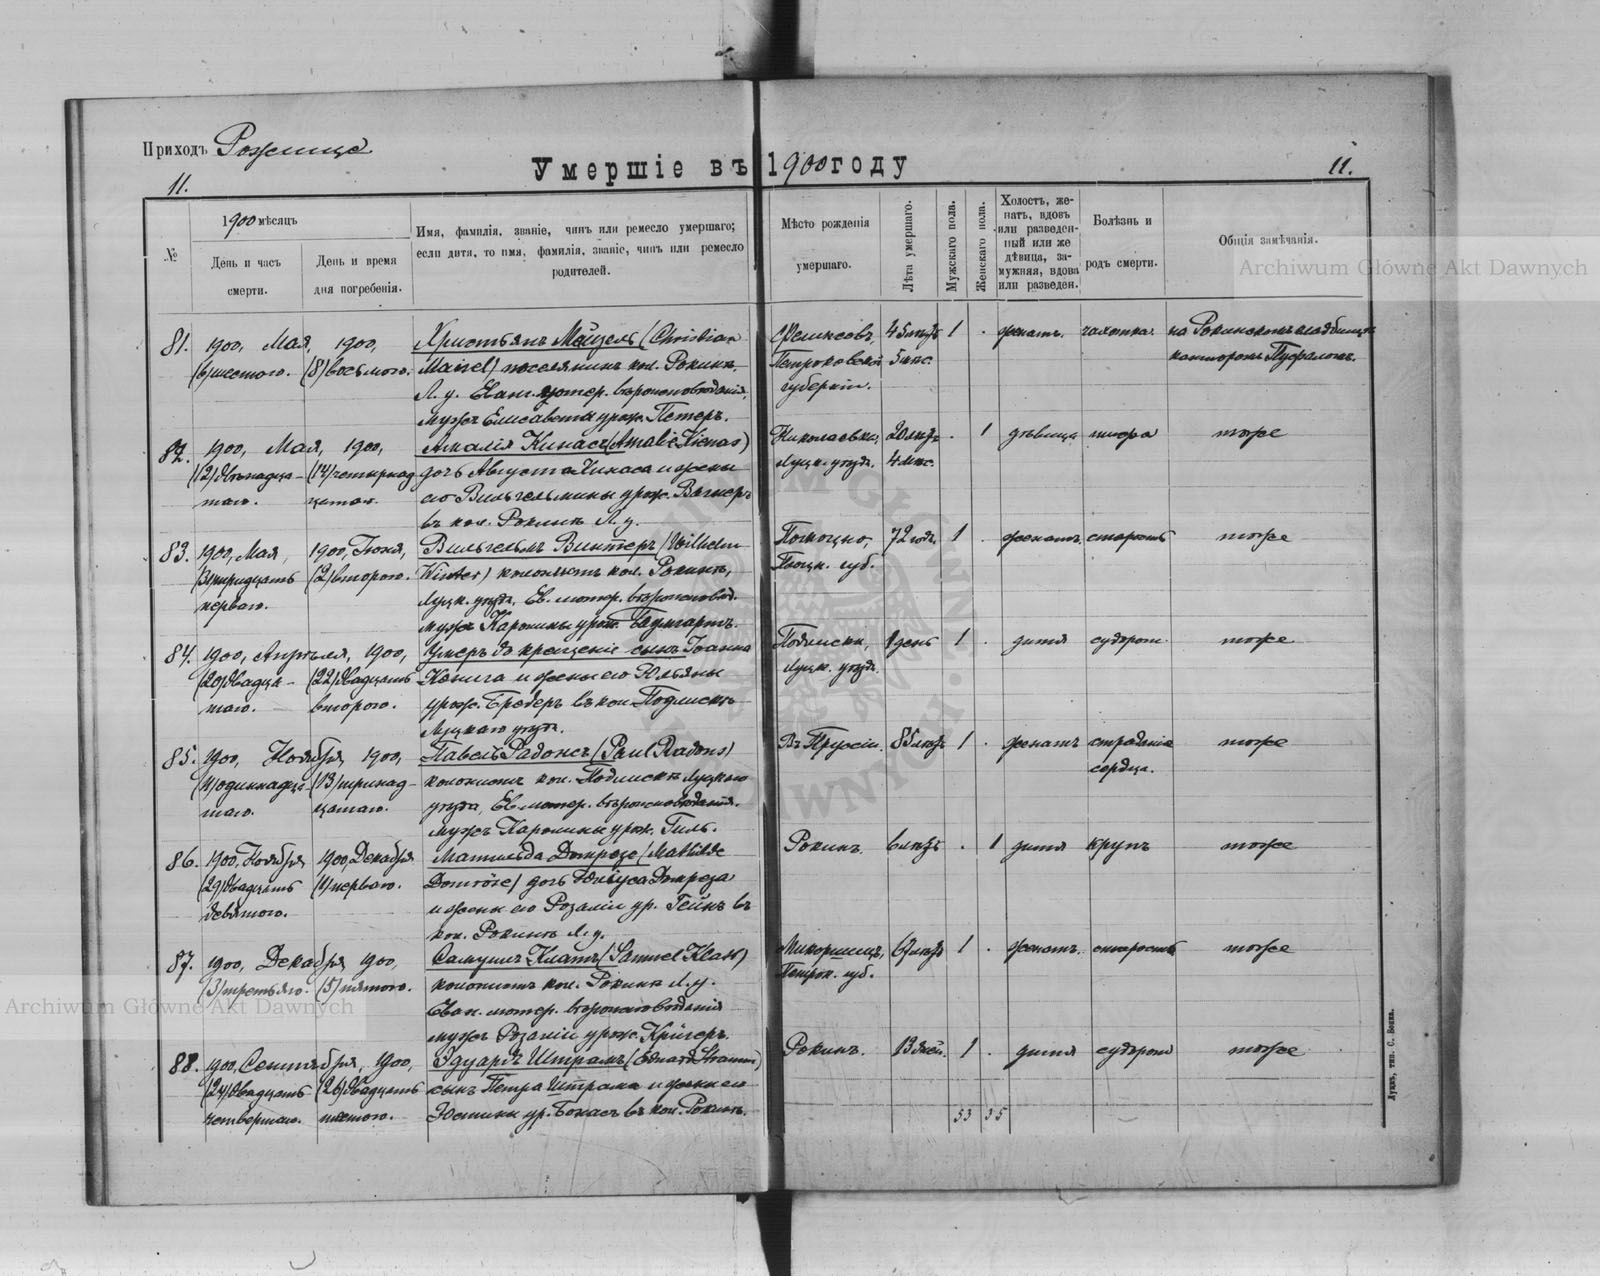 Приходъ Рожище
Умершіе въ 1900 году
11.
11.
№
1900 мѣсяцъ
День и часъ смерти.
День и время дня погребенія.
Имя, фамилія, званіе, чинъ или ремесло умершаго;
если дитя, то имя, фамилія, званіе, чинъ или ремесло
родителей.
Мѣсто рожденія
умершаго.
Лѣта умершаго.
Мужскаго пола.
Женскаго пола.
Холостъ, же-
натъ, вдовъ
или разведен-
ный или же
дѣвица, за-
мужняя, вдова
или разведен.
Болѣзнь и
родъ смерти.
Общія замѣчанія.
81. 1900, Мая, 1900,
(6) шестого. (8) восьмого.
Христьянъ Мейзель (Christian
Maisel) поселянинъ кол. Рокини,
Л. у. Еванг. лютер. вѣроисповѣданія,
мужъ Елисаветы урож. Петеръ.
Фелик​совъ, 45 лѣтъ 1 . женатъ. чахотка. на Рокинскомъ кладбищѣ
Петроковской 5 мѣс.
губерніи.
82. 1900, Мая, 1900,
(12) двѣнадца- (14) четырнад-
таго. цатаго.
Амалія Кинасъ (Amalie Kienas)
дочь Августа Кинаса и жены
его Вильгельмины урож. Вагнеръ
въ кол. Рокини Л. у.
Николаевка, 20 лѣтъ . 1 дѣвица тоже
Луцк. уѣзда. 4 мѣс.
83. 1900, Мая, 1900, Іюня,
(31) тридцать (2) второго.
перваго.
Вильгельмъ Винтеръ (Wilhelm
Winter) колонистъ кол. Рокини,
Луцк. уѣзда, Ев. лютер. вѣроисповѣд.
мужъ Каролины урож. Баумгартъ.
72 года. 1 . женатъ. старость тоже
84. 1900, Апрѣля, 1900,
(20) двадца- (22) двадцать
таго. второго.
Умеръ до крещенія сынъ Іоанна
Кенига и жены его Юльяны
урож. Бредеръ въ кол. Подлиски
Луцкаго уѣзда.
Подлиски, 1 день 1 . дитя судорож. тоже
Луцк. уѣзда.
85. 1900, Ноября, 1900,
(11) одиннадца- (13) тринад-
таго. цатаго.
Павелъ Радонсъ (Paul Radons)
колонистъ кол. Подлиски Луцкаго
уѣзда, Ев. лютер. вѣроисповѣданія.
мужъ Каролины урож. Гиль.
Въ Пруссіи. 85 лѣтъ 1 . женатъ страданіе тоже
сердца.
86. 1900, Ноября 1900, Декабря
(29) двадцать (1) перваго.
девятого.
Матильда Домрезе (Mathilde
Domröse) дочь Юліуса Домреза
и жены его Розаліи ур. Гейнъ въ
кол. Рокини Л. у.
Рокини. 6 лѣтъ . 1 дитя крупъ тоже
87. 1900, Декабря, 1900,
(3) третьяго. (5) пятого.
Самуилъ Клаттъ (Samuel Klatt)
колонистъ кол. Рокини Л. у.
Еван. лютер. вѣроисповѣданія
мужъ Розаліи урож. Кригеръ.
67 лѣтъ 1 . женатъ. старость тоже
Петрок. губ.
88. 1900, Сентября, 1900,
(24) двадцать (26) двадцать
четвертаго. шестого.
Эдуардъ Штрамъ (Eduard Stramm)
сынъ Петра Штрама и жены его
Юстины ур. Бокасъ въ кол. Рокини.
Рокини. 13 дней. 1 . дитя судорож. тоже
53 35
Луцкъ, тип. С. Бонка.
Archiwum Główne Akt Dawnych
Archiwum Główne Akt Dawnych